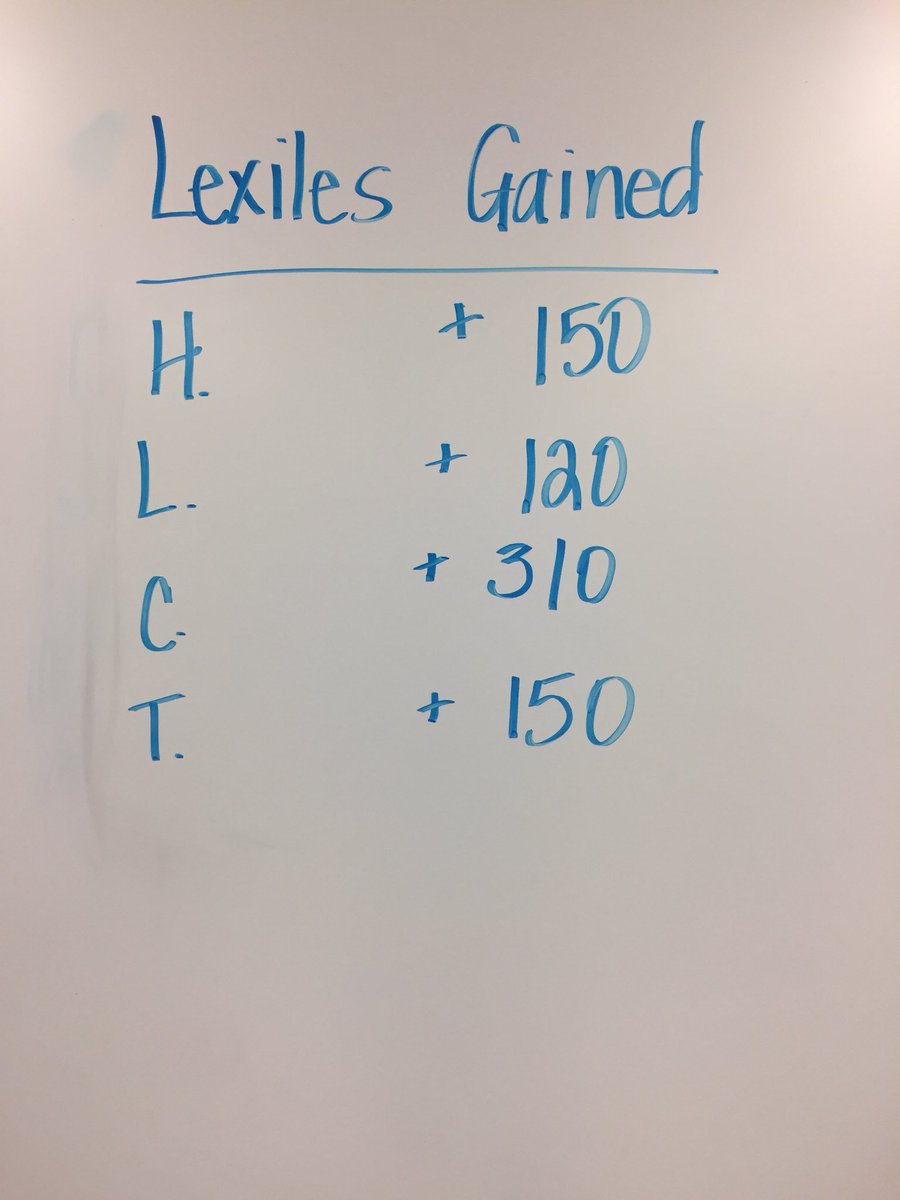 Lexiles Gained
H. + 150
L. + 120
C. + 310
T. + 150